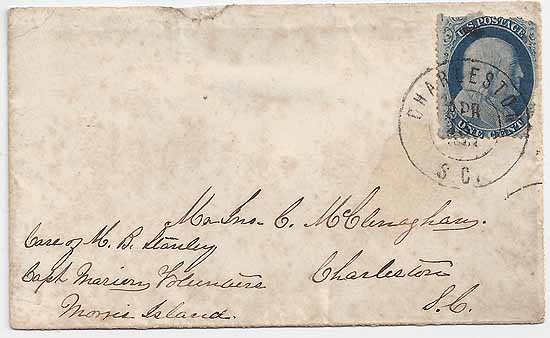 U.S. POSTAGE
ONE CENT
CHARLESTON
APR
S.C.
Mr Jno. C. McClenaghan.
Charleston
S.C.
Care of M. B. Stanley
Capt Marion Volunteers
Morris Island.